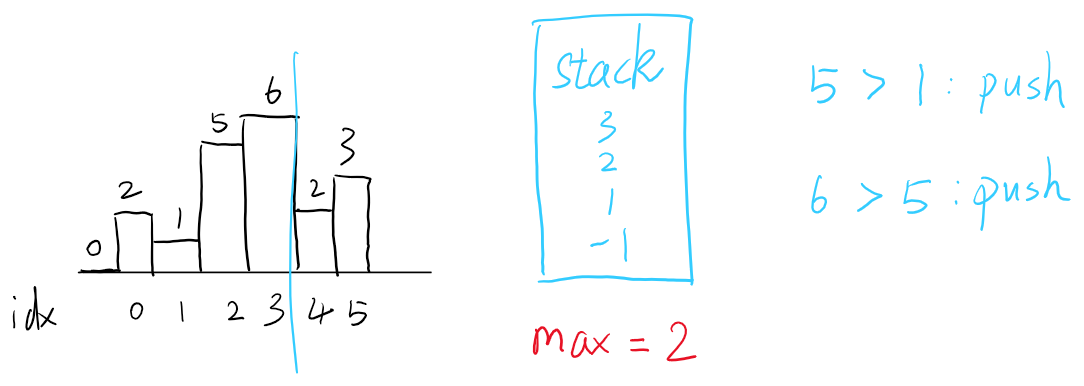 6
5
3
2
2
1
0
idx 0 1 2 3 4 5
stack
3
2
1
-1
max = 2
5 > 1 : push
6 > 5 : push